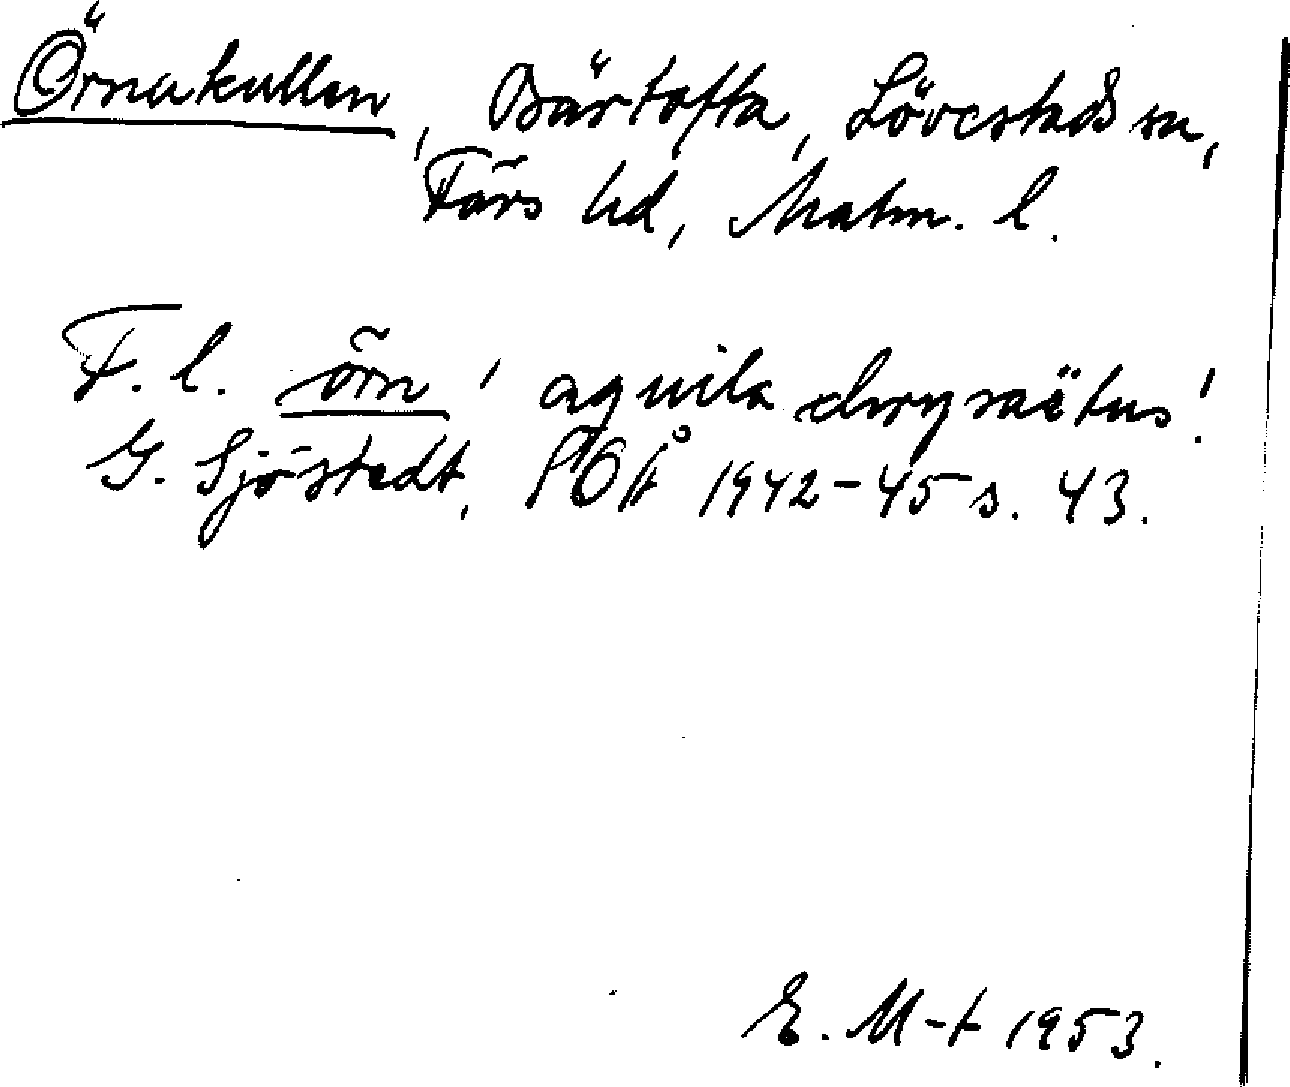 Örnakullen, Bärtofta, Lövestads sn,
Färs hd, Malm. l.
F.l. örn 'aquila chrysaëtus'.
G. Sjöstedt, SOÅ 1942-45 s. 43.
E. M-t 1953.